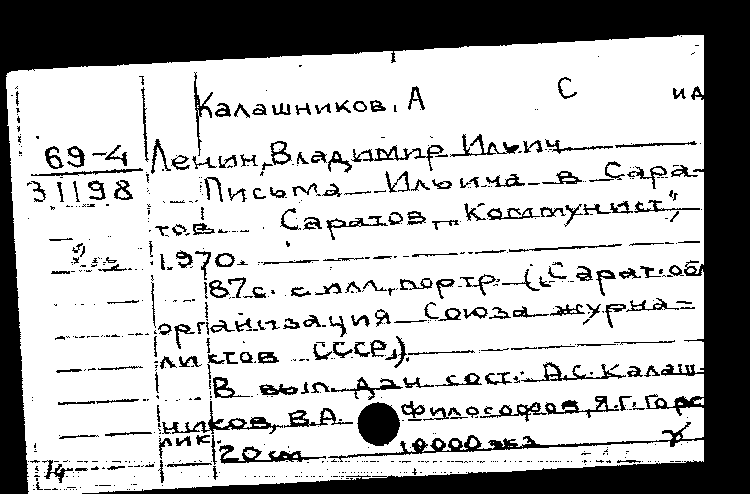 Калашников, А С ид
69-4 Ленин, Владимир Ильич
31198 Письма Ильича в Сара-
тов. Саратов, „Коммунист",
1970.
87с. с илл, портр. („Сарат. обл
организация Союза журна=
листов СССР„)
В вып. дан сост.: А.С. Калаш-
ников, В.А. Философов, Я.Г. Горе
лик.
20 см 10000 экз
14